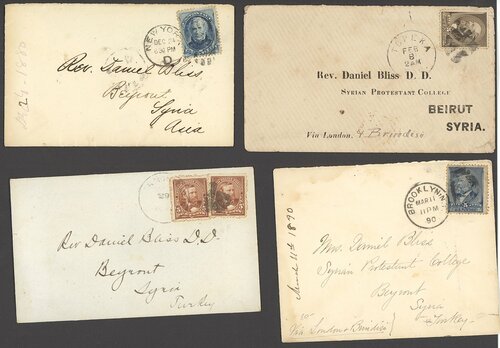 NEW YORK
DEC 24
6 30 PM
D
Rev. Daniel Bliss,
Beyrout
Syria
Asia
TOPEKA
FEB
8
2 AM
Rev. Daniel Bliss D. D.
Syrian Protestant College
BEIRUT
SYRIA.
Via London. & Brindisi
Rev Daniel Bliss D.D.
Beyrout
Syria
Turkey
BROOKLYN N.Y.
MAR 11
11 PM
90
March 11th 1890
Mrs. Daniel Bliss
Syrian Protestant College
Beyrout
Syria
Turkey
Via London & Brindisi